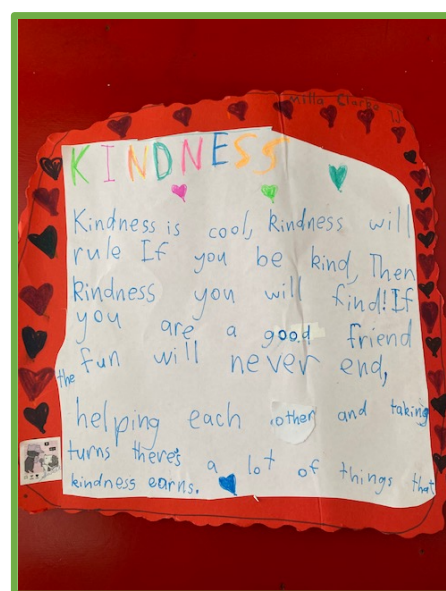 Milla Clarke
KINDNESS
Kindness is cool, kindness will
rule If you be kind, Then
kindness you will find! If
you are a good friend
the fun will never end,
helping each other and taking
turns there's a lot of things that
kindness earns.